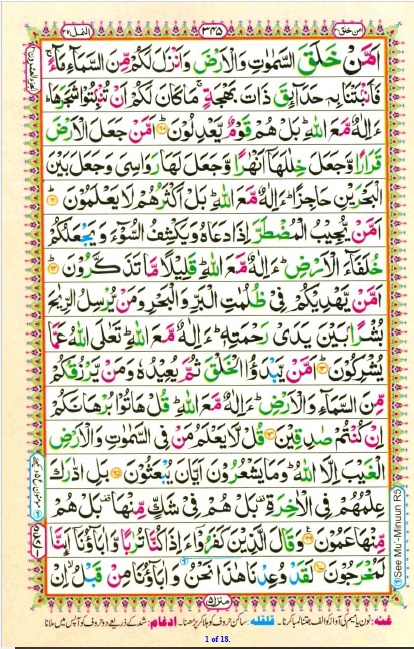 امن خلق ٢٠
٣٤٥
النمل ٢٧
اَمَّنْ خَلَقَ السَّمٰوٰتِ وَالْاَرْضَ وَاَنْزَلَ لَكُمْ مِّنَ السَّمَآءِ مَآءً ۚ
فَاَنْۢبَتْنَا بِهٖ حَدَآئِقَ ذَاتَ بَهْجَةٍ ۚ مَا كَانَ لَكُمْ اَنْ تُنْۢبِتُوْا شَجَرَهَا ؕ
ءَاِلٰهٌ مَّعَ اللّٰهِ ؕ بَلْ هُمْ قَوْمٌ يَّعْدِلُوْنَ ؕ﴿۶۰﴾ اَمَّنْ جَعَلَ الْاَرْضَ
قَرَارًا وَّجَعَلَ خِلٰلَهَاۤ اَنْهٰرًا وَّجَعَلَ لَهَا رَوَاسِيَ وَجَعَلَ بَيْنَ
الْبَحْرَيْنِ حَاجِزًا ؕ ءَاِلٰهٌ مَّعَ اللّٰهِ ؕ بَلْ اَكْثَرُهُمْ لَا يَعْلَمُوْنَ ؕ﴿۶۱﴾
اَمَّنْ يُّجِيْبُ الْمُضْطَرَّ اِذَا دَعَاهُ وَيَكْشِفُ السُّوْٓءَ وَيَجْعَلُكُمْ
خُلَفَآءَ الْاَرْضِ ؕ ءَاِلٰهٌ مَّعَ اللّٰهِ ؕ قَلِيْلًا مَّا تَذَكَّرُوْنَ ؕ﴿۶۲﴾
اَمَّنْ يَّهْدِيْكُمْ فِيْ ظُلُمٰتِ الْبَرِّ وَالْبَحْرِ وَمَنْ يُّرْسِلُ الرِّيٰحَ
بُشْرًۢا بَيْنَ يَدَيْ رَحْمَتِهٖ ؕ ءَاِلٰهٌ مَّعَ اللّٰهِ ؕ تَعٰلَى اللّٰهُ عَمَّا
يُشْرِكُوْنَ ؕ﴿۶۳﴾ اَمَّنْ يَّبْدَؤُا الْخَلْقَ ثُمَّ يُعِيْدُهٗ وَمَنْ يَّرْزُقُكُمْ
مِّنَ السَّمَآءِ وَالْاَرْضِ ؕ ءَاِلٰهٌ مَّعَ اللّٰهِ ؕ قُلْ هَاتُوْا بُرْهَانَكُمْ
اِنْ كُنْتُمْ صٰدِقِيْنَ ﴿۶۴﴾ قُلْ لَّا يَعْلَمُ مَنْ فِي السَّمٰوٰتِ وَالْاَرْضِ
الْغَيْبَ اِلَّا اللّٰهُ ؕ وَمَا يَشْعُرُوْنَ اَيَّانَ يُبْعَثُوْنَ ﴿۶۵﴾ بَلِ ادّٰرَكَ
عِلْمُهُمْ فِي الْاٰخِرَةِ ۫ بَلْ هُمْ فِيْ شَكٍّ مِّنْهَا ۫ بَلْ هُمْ
مِّنْهَا عَمُوْنَ ﴿۶۶﴾ وَقَالَ الَّذِيْنَ كَفَرُوْٓا ءَاِذَا كُنَّا تُرٰبًا وَّاٰبَآؤُنَاۤ اَئِنَّا
لَمُخْرَجُوْنَ ﴿۶۷﴾ لَقَدْ وُعِدْنَا هٰذَا نَحْنُ وَاٰبَآؤُنَا مِنْ قَبْلُ ۙ اِنْ
See Mu'-Minuun R5
منزل ٥
غنه: نون یا میم کی آواز کو الف جتنا لمبا کرنا۔ قلقله: ساکن حروف کو ہلا کر پڑھنا۔ ادغام: شد کے ذریعے دو حروف کو آپس میں ملانا
1 of 18.